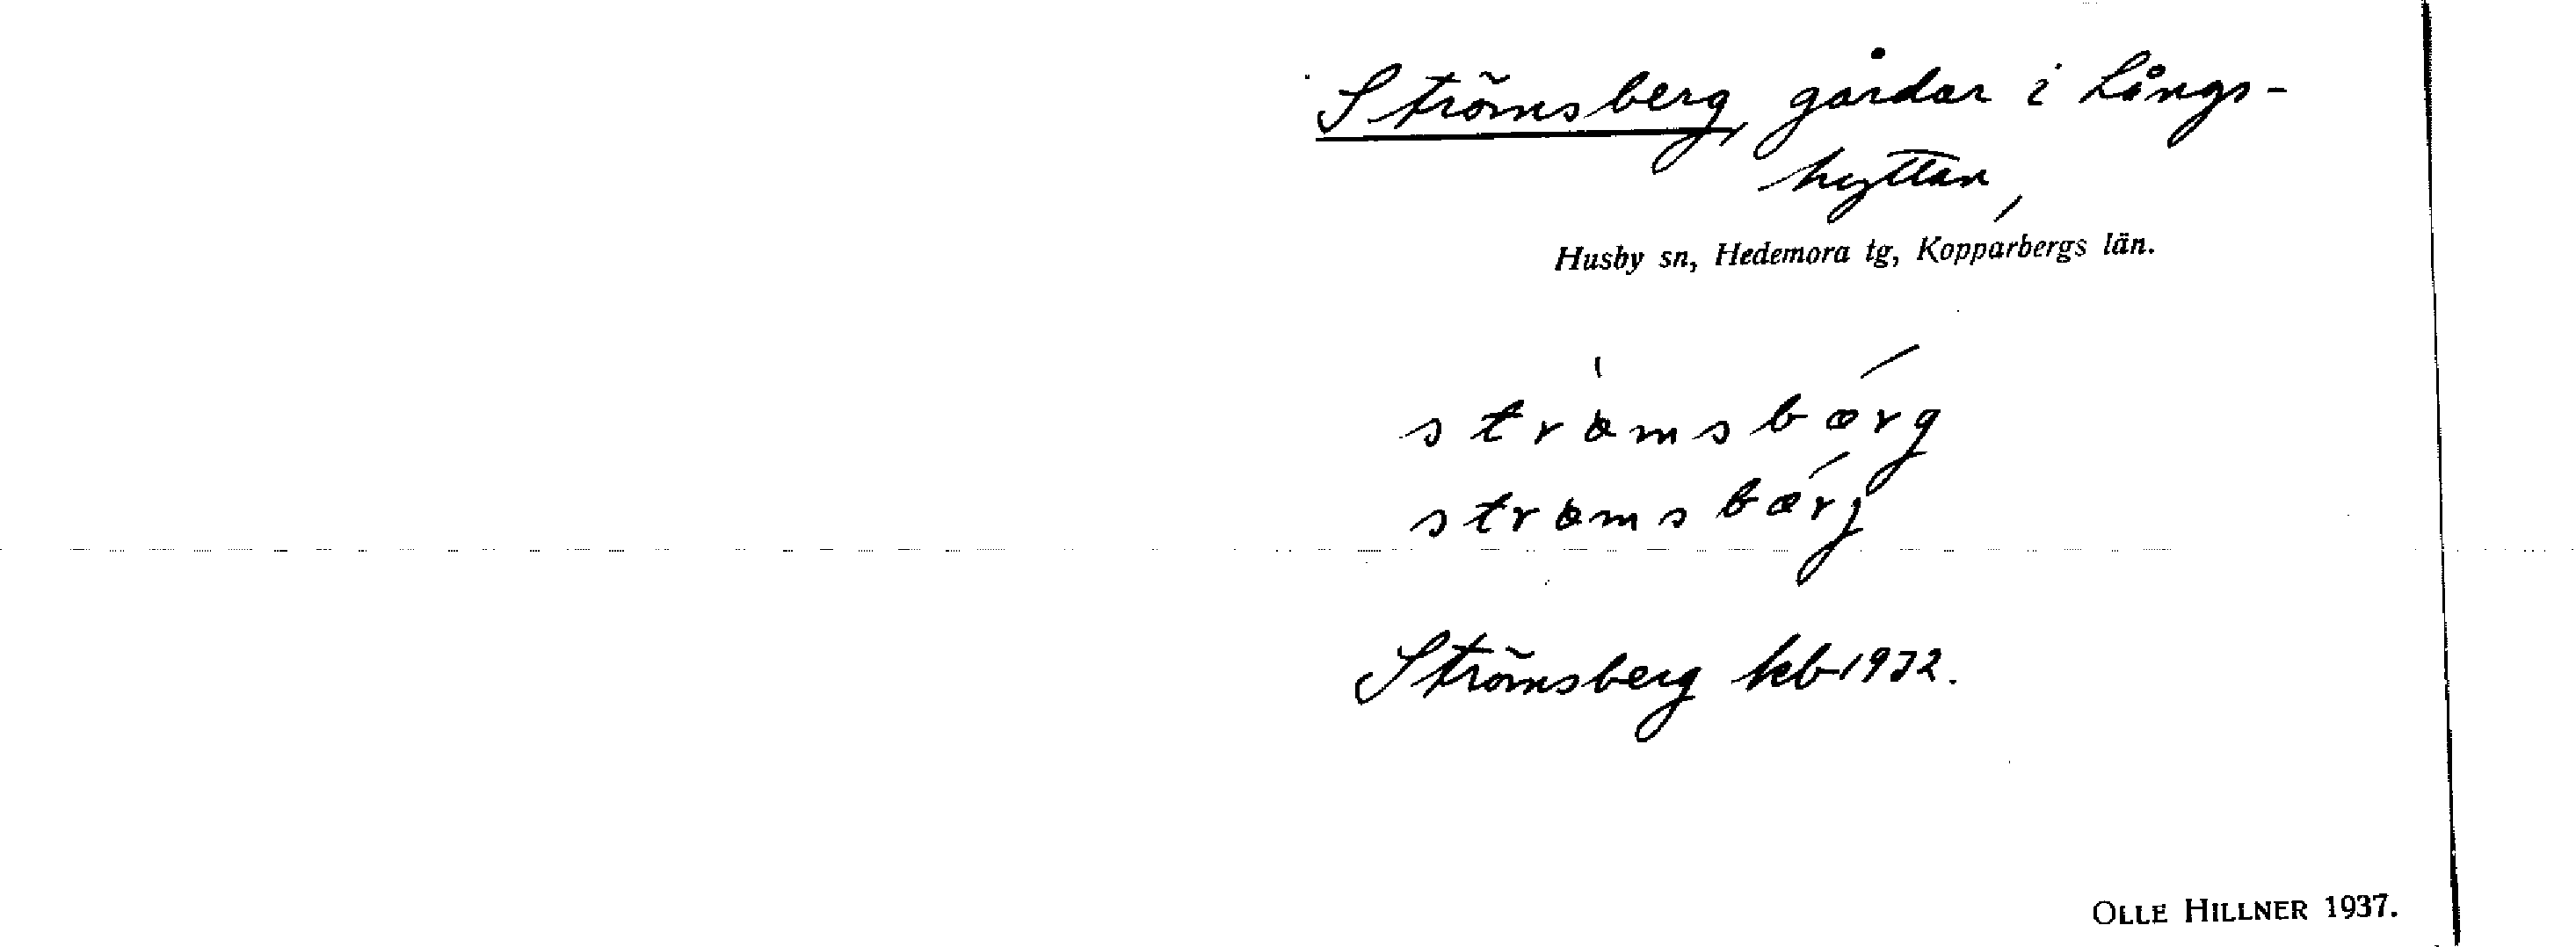 Strömsberg, gårdar i Långs-
hyttan,
Husby sn, Hedemora tg, Kopparbergs län.
strømsbærg
strømsbærj
Strömsberg kb 1932.
OLLE HILLNER 1937.